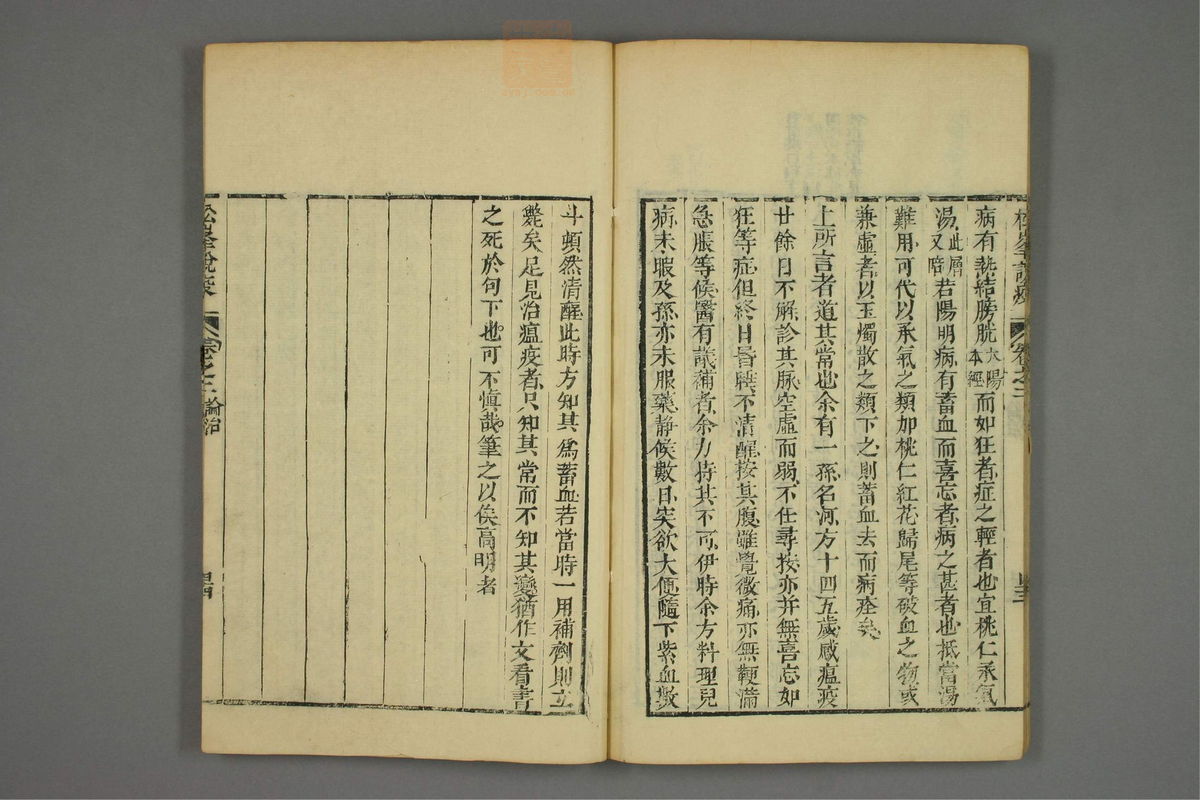 病有熱結膀胱太陽本經而如狂者症之輕者也宜桃仁承氣
湯此層又暗若陽明病有畜血而喜忘者病之甚者也抵當湯
難用可代以承氣之類加桃仁紅花歸尾等破血之物或
兼虛者以玉燭散之類下之則蓄血去而病痊矣
上所言者道其常也余有一孫名河方十四五歲感瘟疫
廿餘日不解診其脉空虛而弱不任尋按亦并無喜忘如
狂等症但終日昏睡不清醒按其腹雖覺微痛亦無鞕滿
急脹等候醫有議補者余力持其不可伊時余方料理兒
病未暇及孫亦未服藥靜候數日矣欲大便隨下紫血數
松峯說疫
卷之二
斗頓然清醒此時方知其為蓄血若當時一用補劑則立
斃矣足見治瘟疫者只知其常而不知其變猶作文看書
之死於句下也可不慎哉筆之以俟高明者
松峯說疫
卷之二
論治